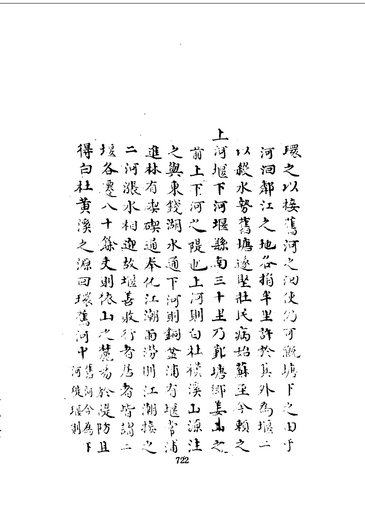 環之以接舊河之洫使仍可溉塘下之田于
河洄鄰江之地各指半里許於其外為堰二
以殺水勢舊塘遂堅壯民病始蘇至今賴之
上河堰下河堰縣南三十里乃鄞塘鄉姜山之
前上下河之隄也上河則白杜橫溪山源注
之與東錢湖水通下河則銅盆浦有堰常浦
進林有碶通奉化江潮而澇則江潮接之
二河漲水相迎故堰善敗行者居者皆謂二
堰各遷八十餘丈則依山之麓易於隄防且
得白杜黃溪之源回環舊河中舊河今為下
河從堰則
722